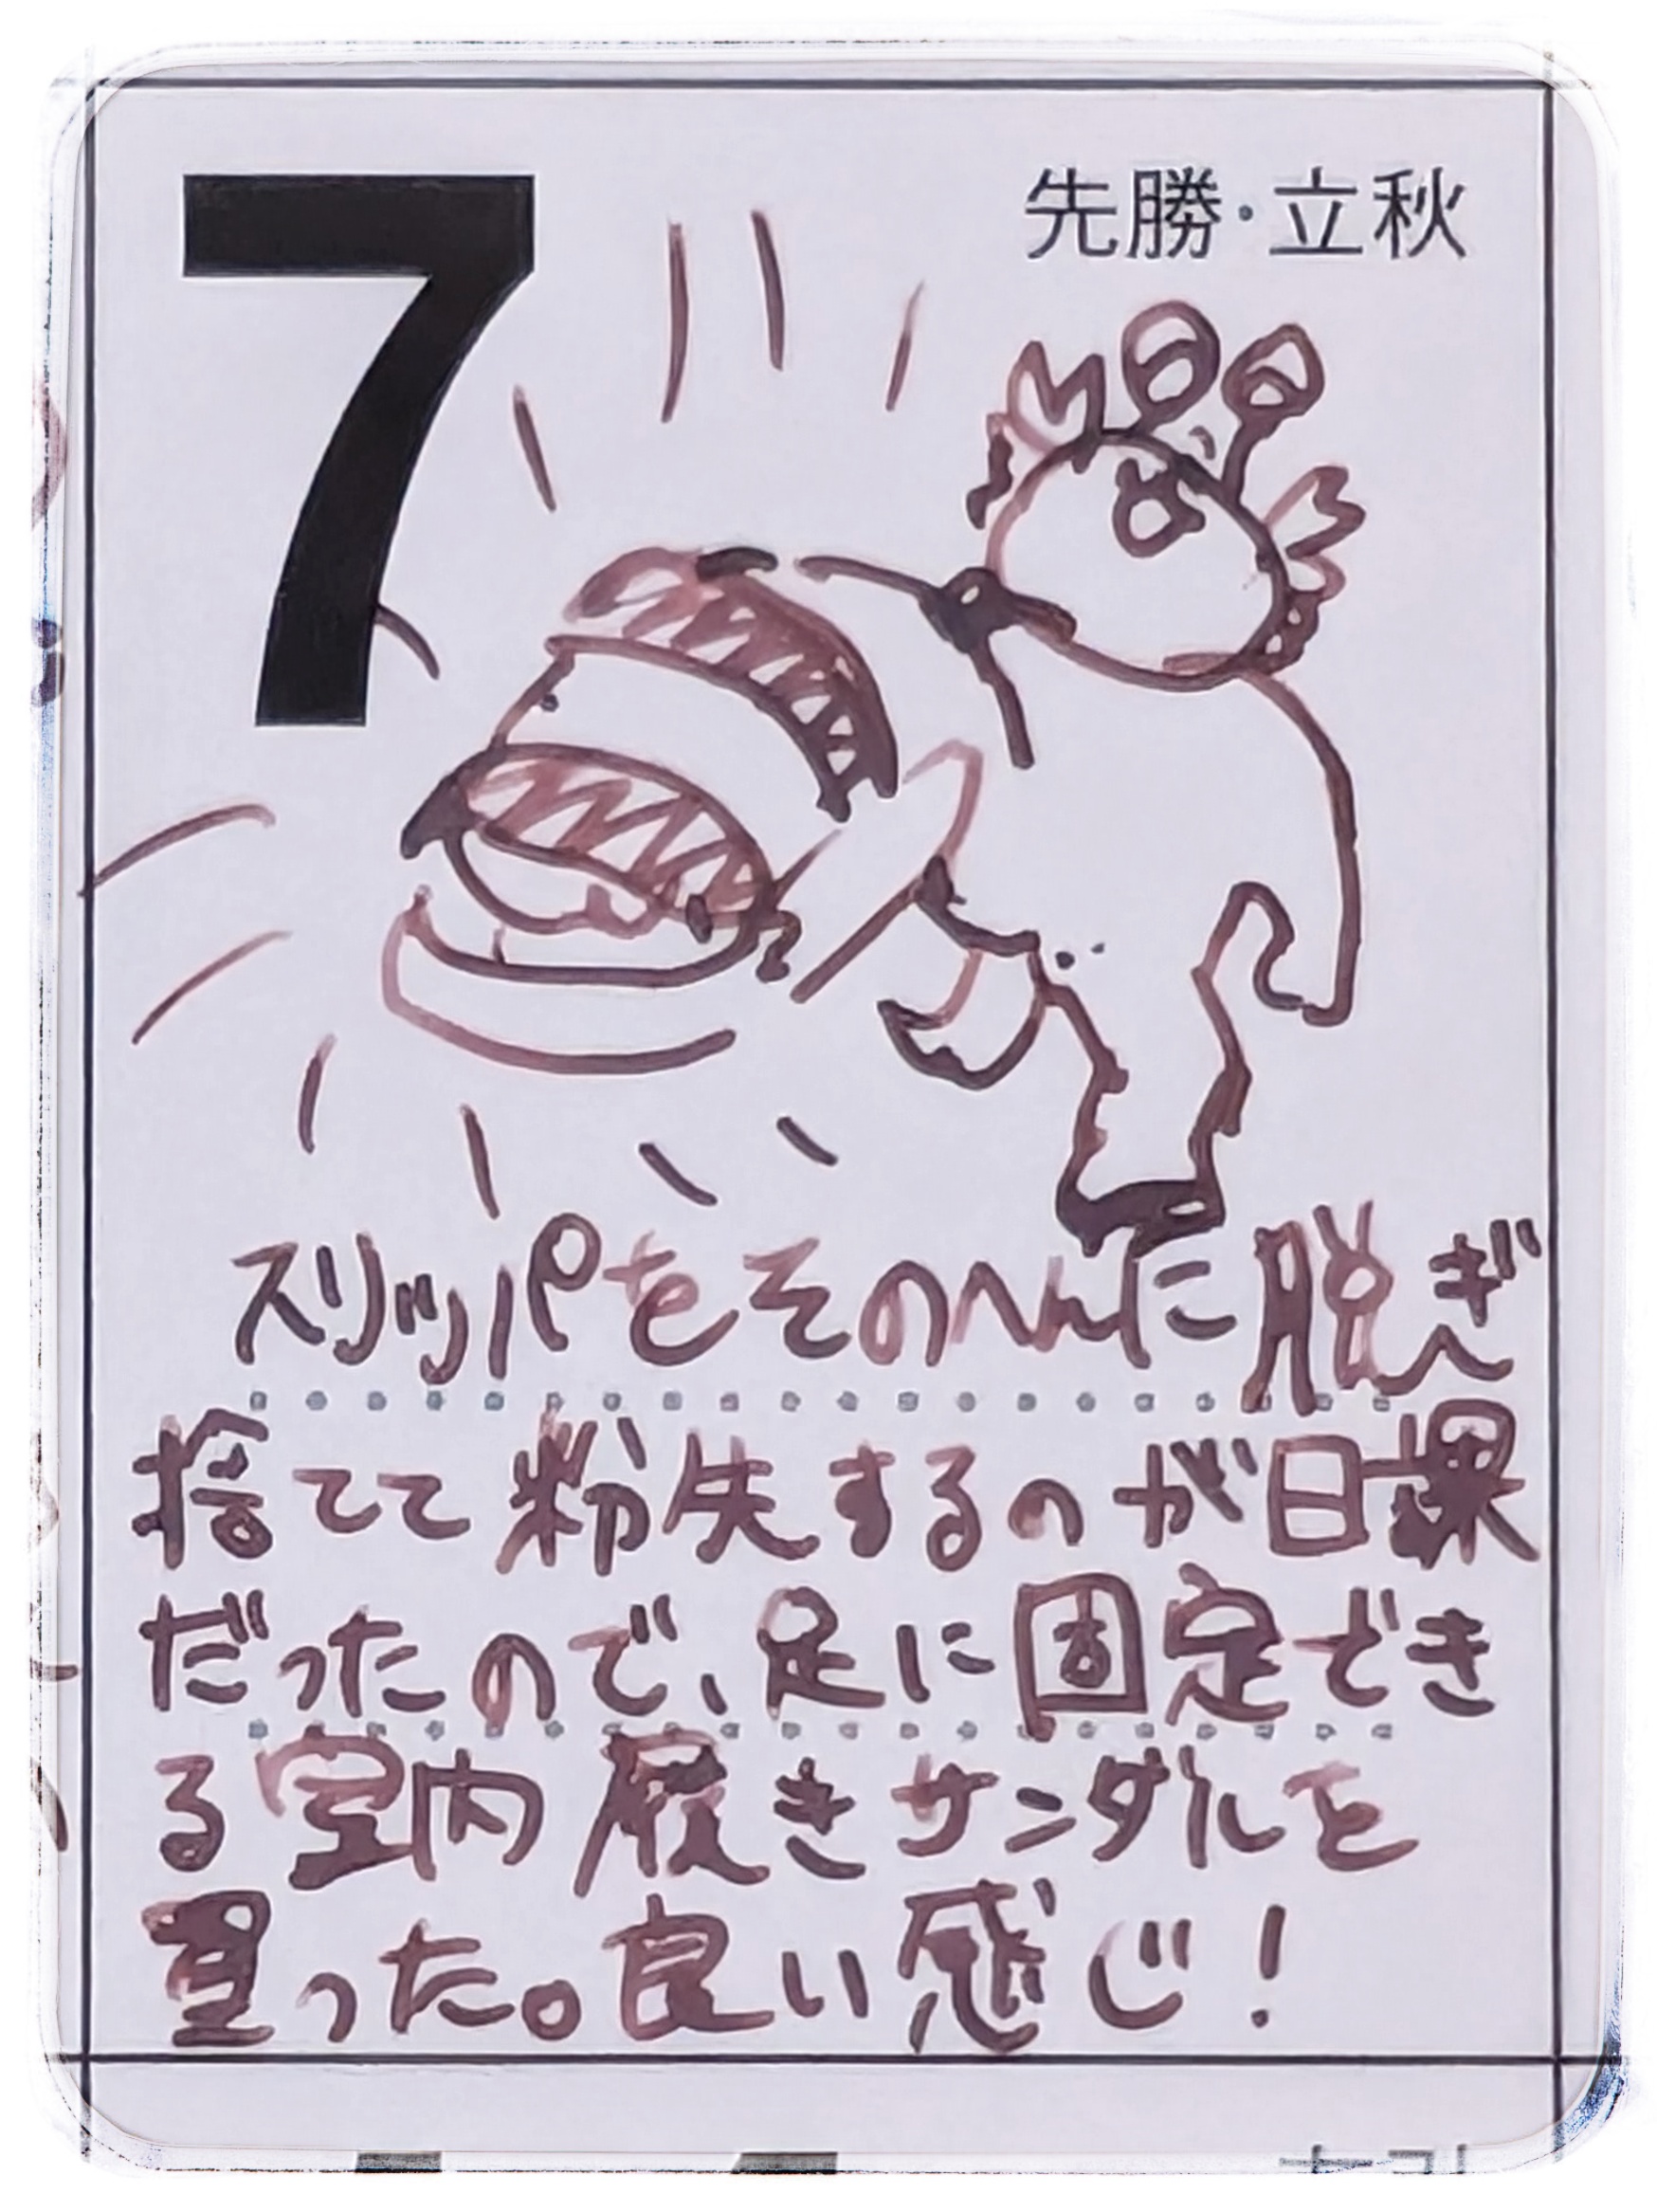 7
先勝・立秋
スリッパをそのへんに脱ぎ
捨てて粉失するのが日課
だったので、足に固定でき
る室内履きサンダルを
買った。良い感じ!